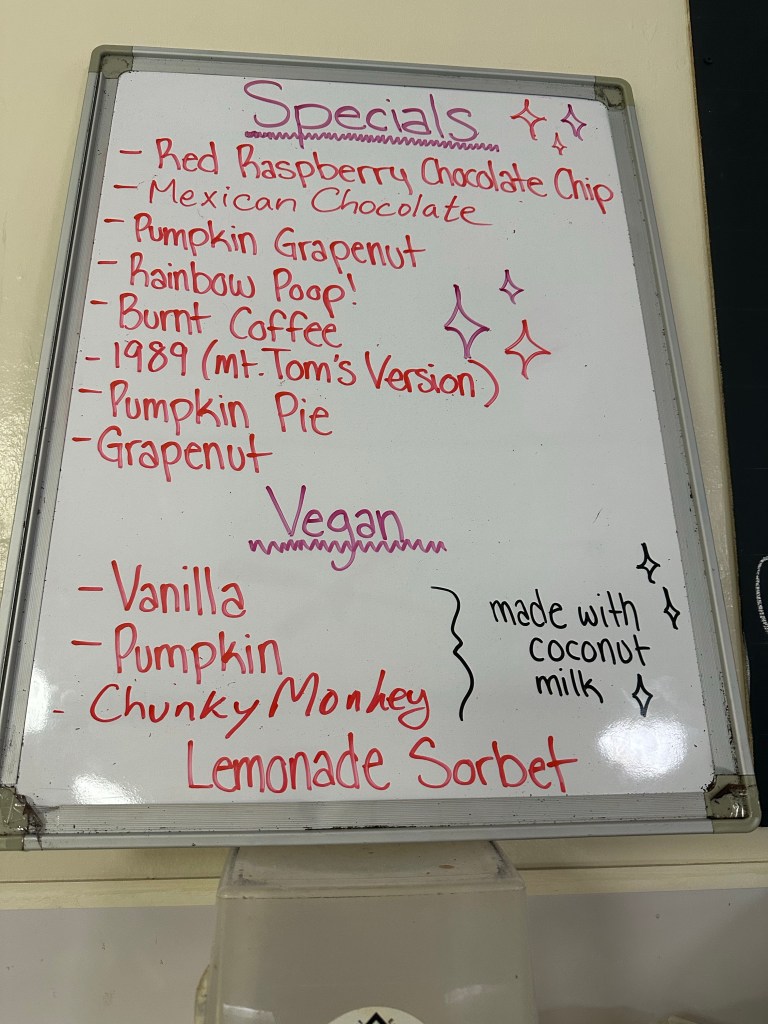 Specials
- Red Raspberry Chocolate Chip
- Mexican Chocolate
- Pumpkin Grapenut
- Rainbow Poop!
- Burnt Coffee
- 1989 (Mt. Tom's Version)
- Pumpkin Pie
- Grapenut
Vegan
- Vanilla
- Pumpkin
- Chunky Monkey
made with
coconut
milk
Lemonade Sorbet